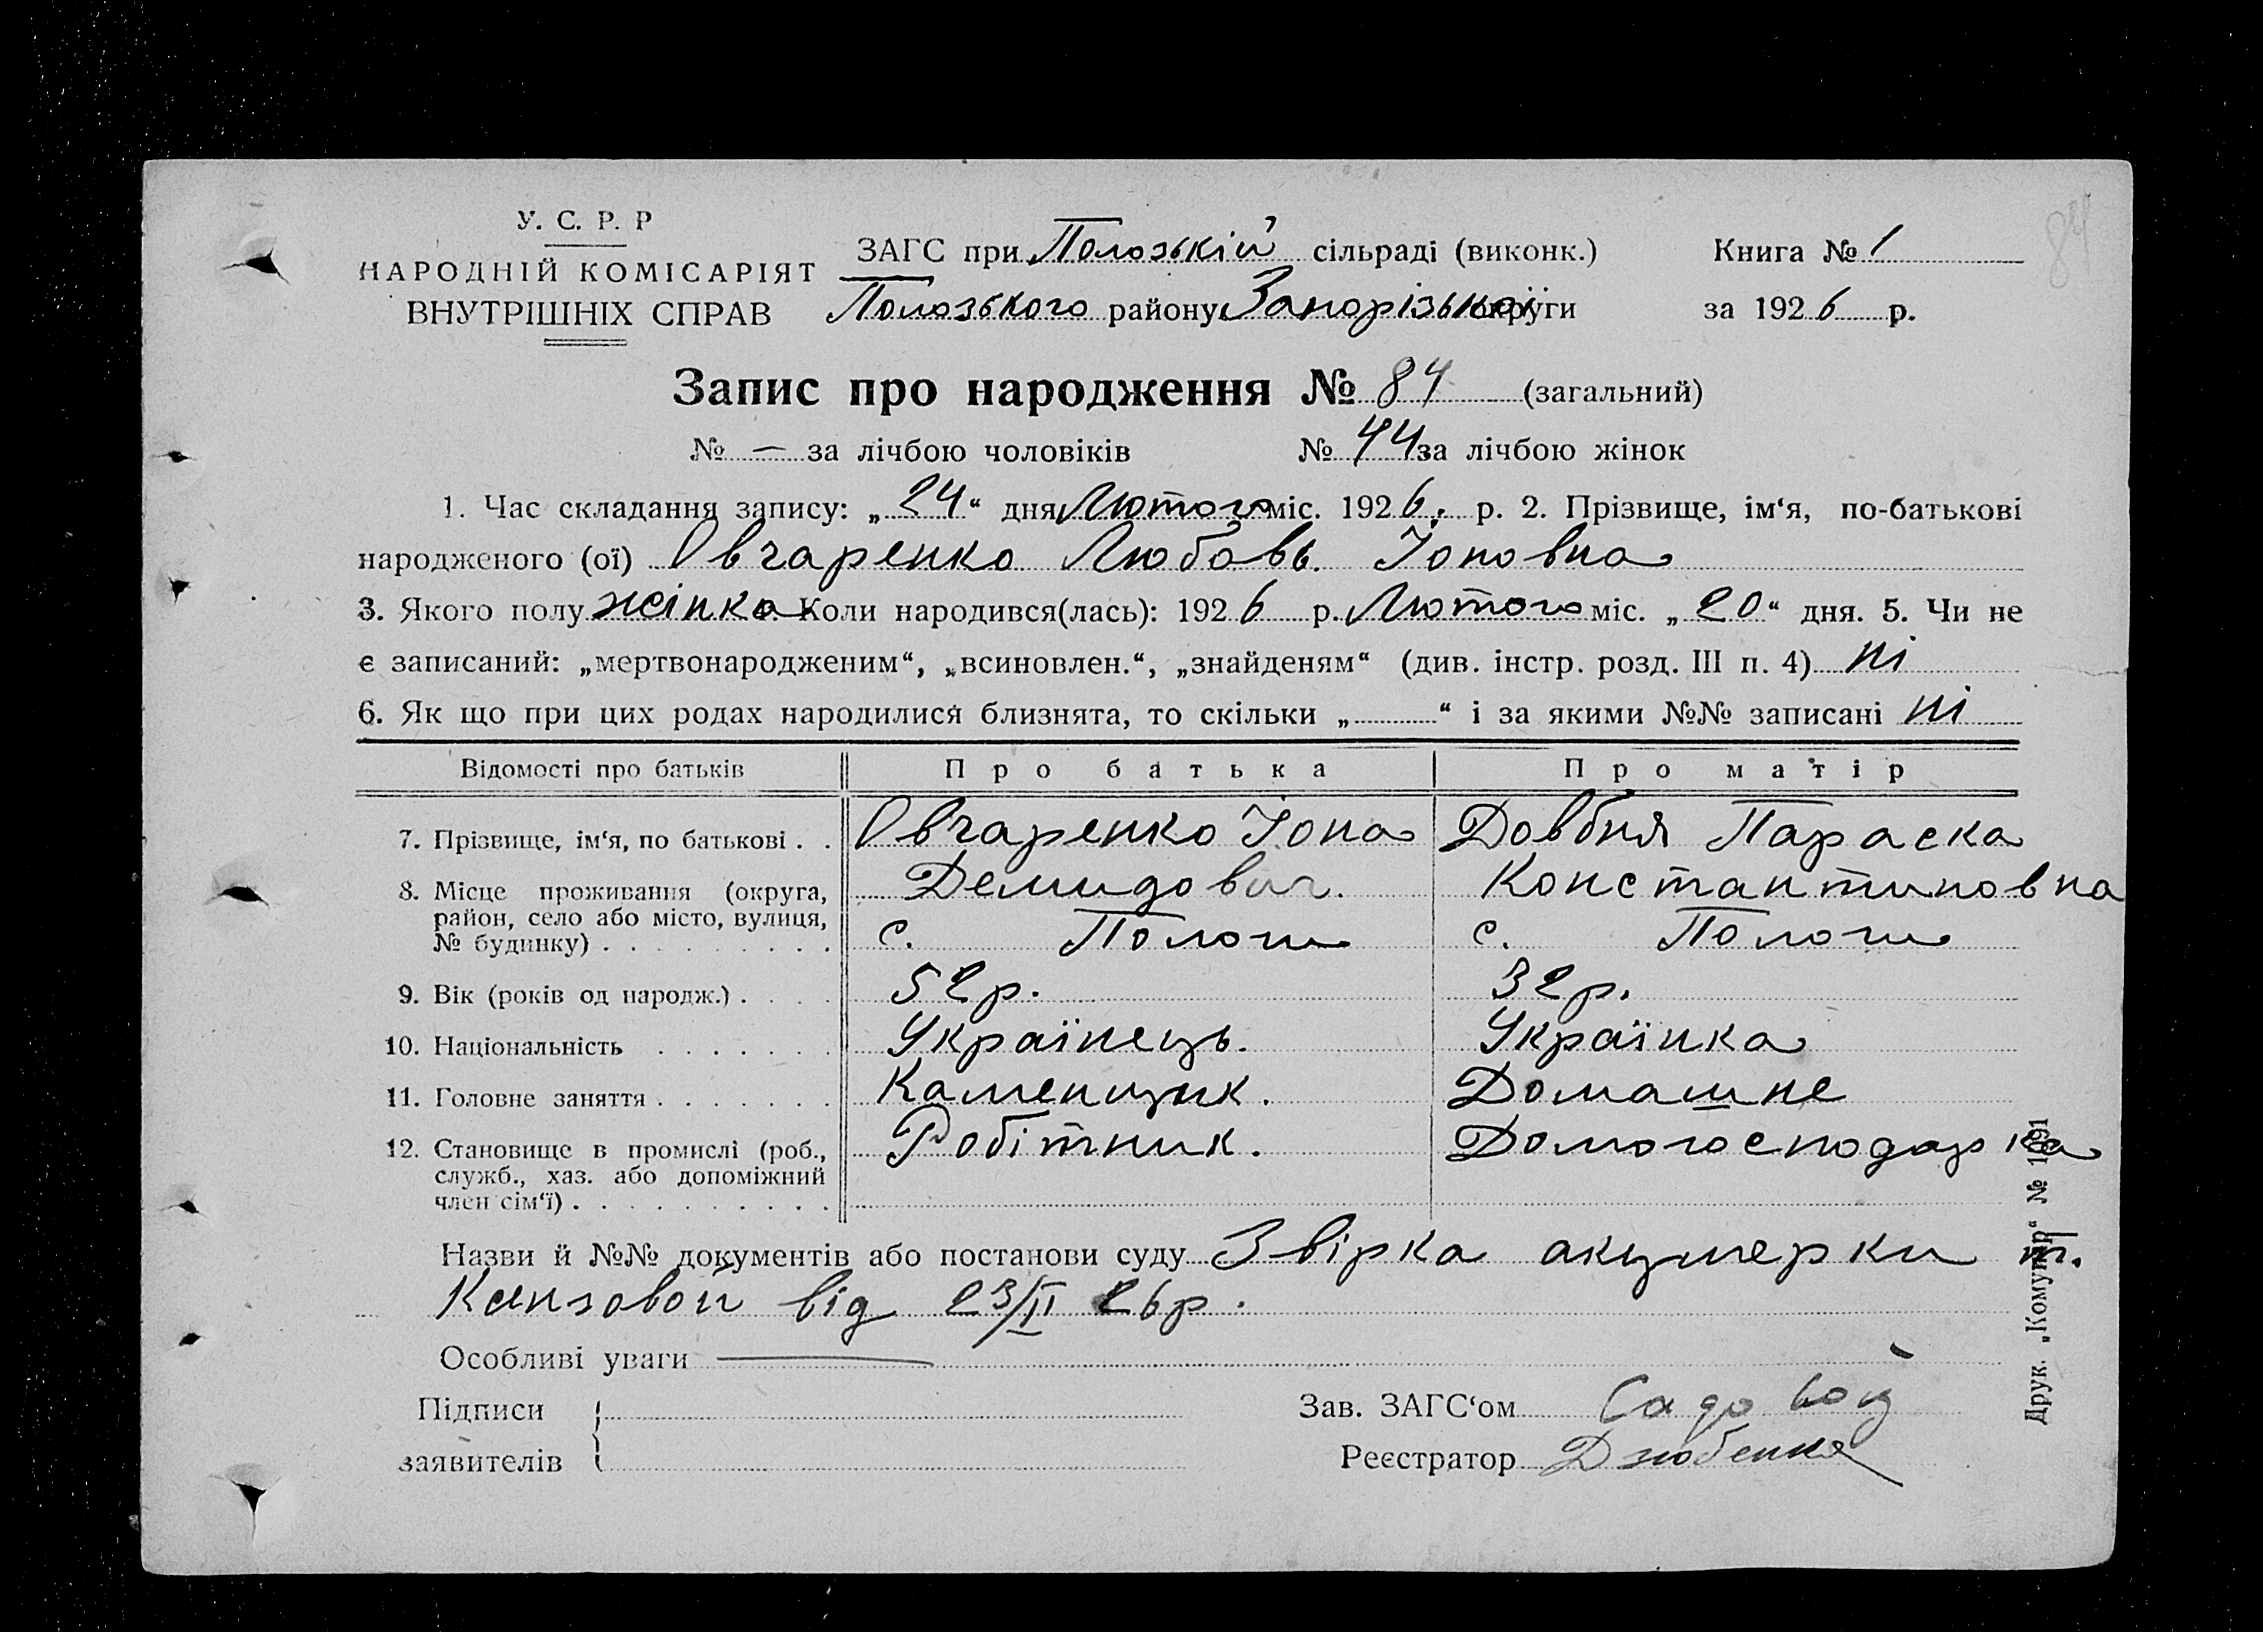 У. С. Р. Р
НАРОДНІЙ КОМІСАРІЯТ
ВНУТРІШНІХ СПРАВ
ЗАГС при Полозькій сільраді (виконк.)
Полозького району Запорізької округи
Книга № 1
за 1926 р.
84
Запис про народження № 84 (загальний)
№ — за лічбою чоловіків № 44 за лічбою жінок
1. Час складання запису: „24“ дня Лютого міс. 1926. р. 2. Прізвище, ім‘я, по-батькові
народженого (ої) Овчаренко Любовь Іоновна
3. Якого полу жінка Коли народився(лась): 1926 р. Лютого міс. „20“ дня. 5. Чи не
є записаний: „мертвонародженим“, „всиновлен.“, „знайденям“ (див. інстр. розд. III п. 4) ні
6. Як що при цих родах народилися близнята, то скільки „ “ і за якими №№ записані ні
Відомості про батьків Про батька Про матір
7. Прізвище, ім‘я, по батькові . . Овчаренко Іона Довбня Параска
Демидович. Константиновна
8. Місце проживання (округа,
район, село або місто, вулиця,
№ будинку) . . . . . . . . . с. Пологи с. Пологи
9. Вік (років од народж.) . . . . 52р. 32р.
10. Національність . . . . . . . Українець. Українка
11. Головне заняття . . . . . . . Каменщик. Домашнє
12. Становище в промислі (роб., Робітник. Домогосподарка
служб., хаз. або допоміжний
член сім‘ї) . . . . . . . . . .
Назви й №№ документів або постанови суду Звірка акушерки т.
від 23/II 26р.
Особливі уваги —
Підписи
заявителів
Зав. ЗАГС‘ом Садовой
Реєстратор Дзюбенко
Друк. „Комунар“ № 1091